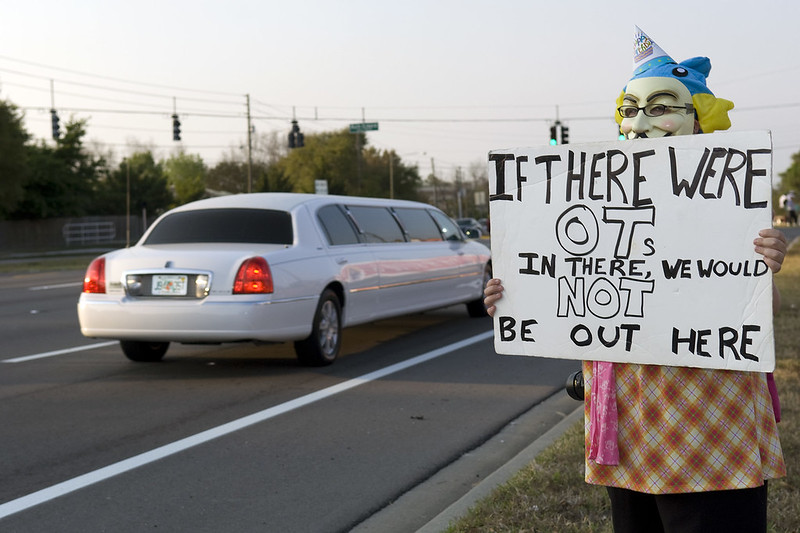 IF THERE WERE
OTs
IN THERE, WE WOULD
NOT
BE OUT HERE